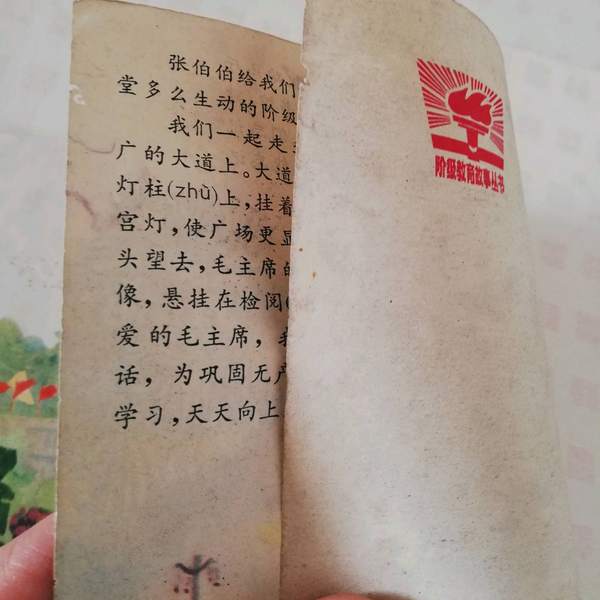 张伯伯给我们
堂多么生动的阶级
我们一起走
广的大道上。大道
灯柱(zhù)上,挂着
宫灯,使广场更显
头望去,毛主席的
像,悬挂在检阅(
爱的毛主席,我
话,为巩固无产
学习,天天向上
阶级教育故事丛书